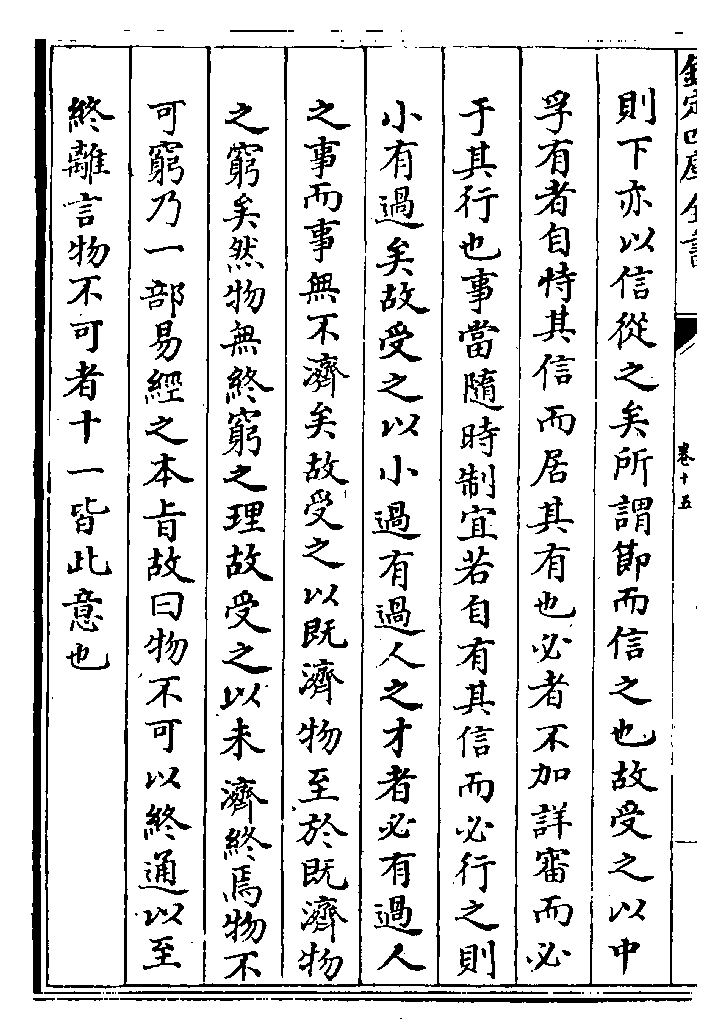 欽定四庫全書
卷十五
則下亦以信從之矣所謂節而信之也故受之以中
孚有者自恃其信而居其有也必者不加詳審而必
于其行也事當隨時制宜若自有其信而必行之則
小有過矣故受之以小過有過人之才者必有過人
之事而事無不濟矣故受之以既濟物至於既濟物
之窮矣然物無終窮之理故受之以未濟終焉物不
可窮乃一部易經之本旨故曰物不可以終通以至
終離言物不可者十一皆此意也